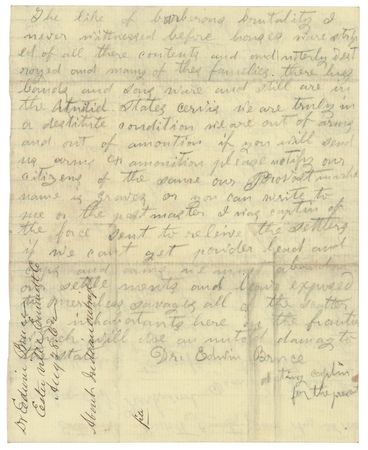 The like of barberous brutality I
never witnessed before houses were strip
ed of all there contents and and uterly dest
royed and many of thes famelies. there hus
bands and sons ware and still are in
the States we are truly in
a destitute condition we are out of arms
and out of amonition if you will send
us arms or amonition please notify our
citizens of the same our Provost marshal
name is Graves or you can write to
me or the postmaster I was captin of
the force sent to releive the settlers
if we can't get powder lead and
caps and arms we must abandon
our settle ments and leave exposed
to merciless savages all of the
inhabitants here on the frontier
which will doe an untold damage to
Dr. Edwin Bruce
acting captin
for the
Dr Edwin Bruce
Aug 1862
About Indian
file